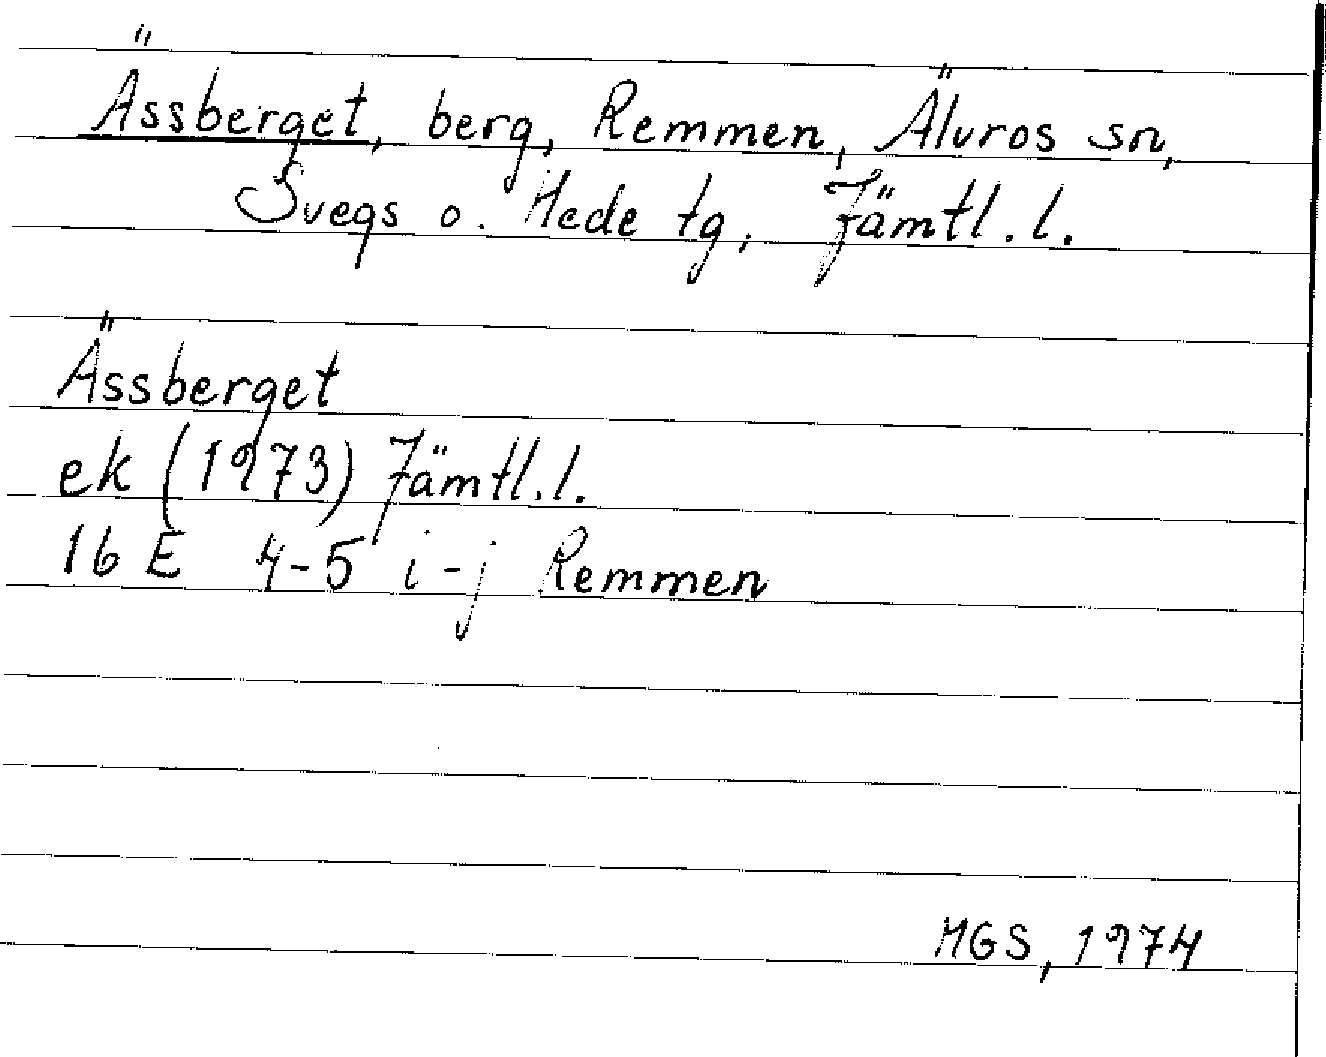 Ässberget, berg, Remmen, Älvros sn,
Svegs o. Hede tg, Jämtl. l.
Ässberget
ek (1973) Jämtl. l.
16 E 4-5 i-j Remmen
MGS, 1974